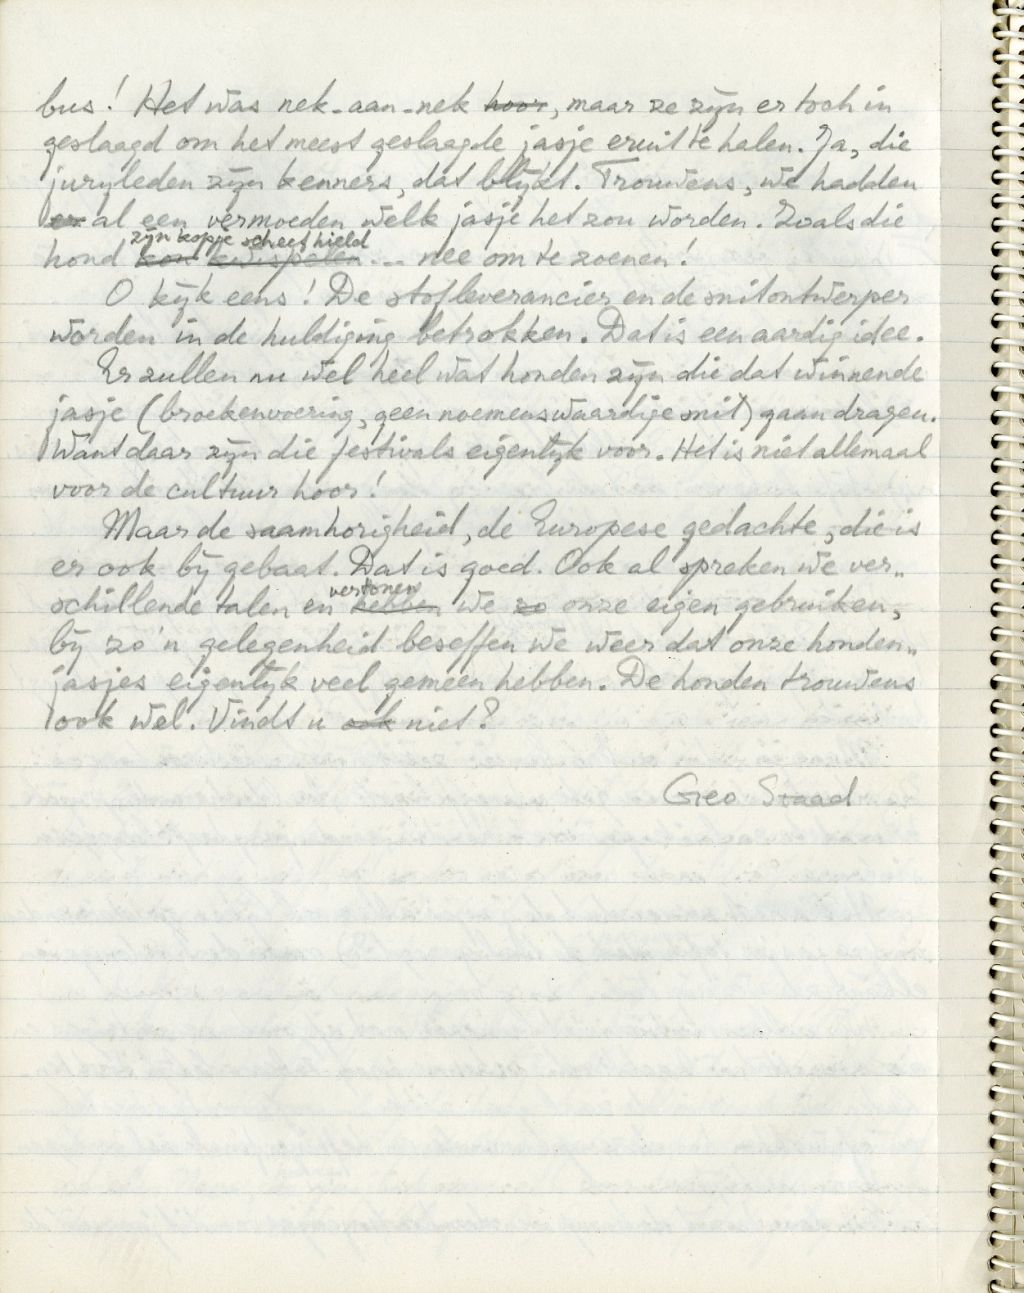 bus! Het was nek-aan-nek hoor, maar ze zijn er toch in
geslaagd om het meest geslaagde jasje eruit te halen. Ja, die
juryleden zijn kenners, dat blijkt. Trouwens, we hadden
er al een vermoeden welk jasje het zou worden. Zoals die
zijn kopje scheef hield
hond kon kwispelen ... nee om te zoenen!
O kijk eens! De stofleverancier en de snitontwerper
worden in de huldiging betrokken. Dat is een aardig idee.
Er zullen nu wel heel wat honden zijn die dat winnende
jasje (broekenvoering, geen noemenswaardige snit) gaan dragen.
Want daar zijn die festivals eigentijk voor. Het is niet allemaal
voor de cultuur hoor!
Maar de saamhorigheid, de Europese gedachte, die is
er ook bij gebaat. Dat is goed. Ook al spreken we ver-
vertonen
schillende talen en hebben we zo onze eigen gebruiken,
bij zo'n gelegenheid beseffen we weer dat onze honden-
jasjes eigenlijk veel gemeen hebben. De honden trouwens
ook wel. Vindt u ook niet?
Geo Staad